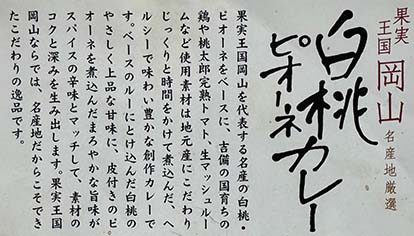 果実王国 岡山
名産地厳選
白桃
ピオーネカレー
果実王国岡山を代表する名産の白桃・
ピオーネをベースに、吉備の国育ちの
鶏や桃太郎完熟トマト、生マッシュルー
ムなど使用素材は地元産にこだわり
じっくりと時間をかけて煮込んだ、ヘ
ルシーで味わい豊かな創作カレーで
す。ベースのルーにとけ込んだ白桃の
やさしく上品な甘味に、皮付きのピ
オーネを煮込んだまろやかな旨味が
スパイスの辛味とマッチして、素材の
コクと深みを生み出します。果実王国
岡山ならでは、名産地だからこそでき
たこだわりの逸品です。